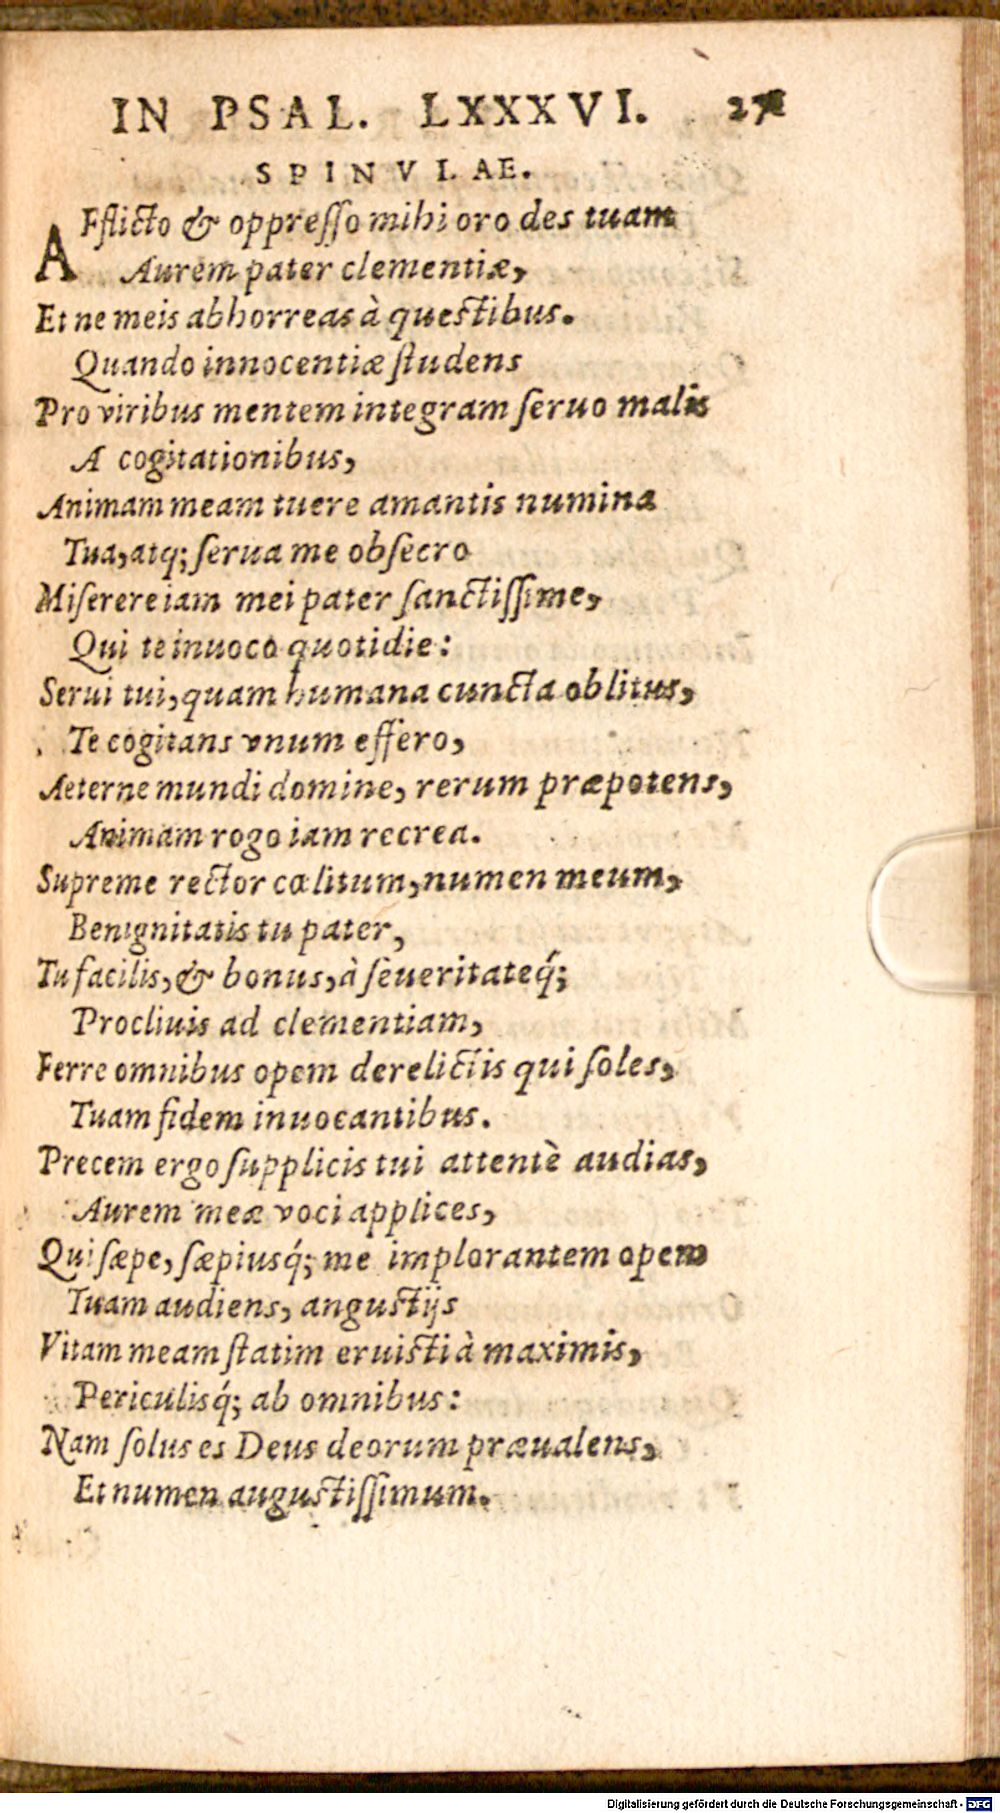 IN PSAL. LXXXVI.
SPINVLAE.
AFflicto & oppresso mihi oro des tuam
Aurem pater clementiæ,
Et ne meis abhorreas à questibus.
Quando innocentiæ studens
Pro viribus mentem integram seruo malis
A cogitationibus,
Animam meam tuere amantis numina
Tua, atq; serua me obsecro
Miserere iam mei pater sanctissime,
Qui te inuoco quotidie:
Serui tui, quam humana cuncta oblitus,
Te cogitans vnum effero,
Aeterne mundi domine, rerum præpotens,
Animam rogo iam recrea.
Supreme rector cœlitum, numen meum,
Benignitatis tu pater,
Tu facilis, & bonus, à seueritateq́;
Procliuis ad clementiam,
Ferre omnibus opem derelictis qui soles,
Tuam fidem inuocantibus.
Precem ergo supplicis tui attentè audias,
Aurem meæ voci applices,
Qui sæpe, sæpiusq́; me implorantem opem
Tuam audiens, angustijs
Vitam meam statim eruisti à maximis,
Periculisq́; ab omnibus:
Nam solus es Deus deorum præualens,
Et numen augustissimum.
Digitalisierung gefördert durch die Deutsche Forschungsgemeinschaft - DFG